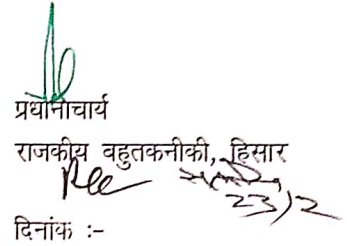 प्रधानाचार्य
राजकीय वहुतकनीकी, हिसार
23/2
दिनांक :-